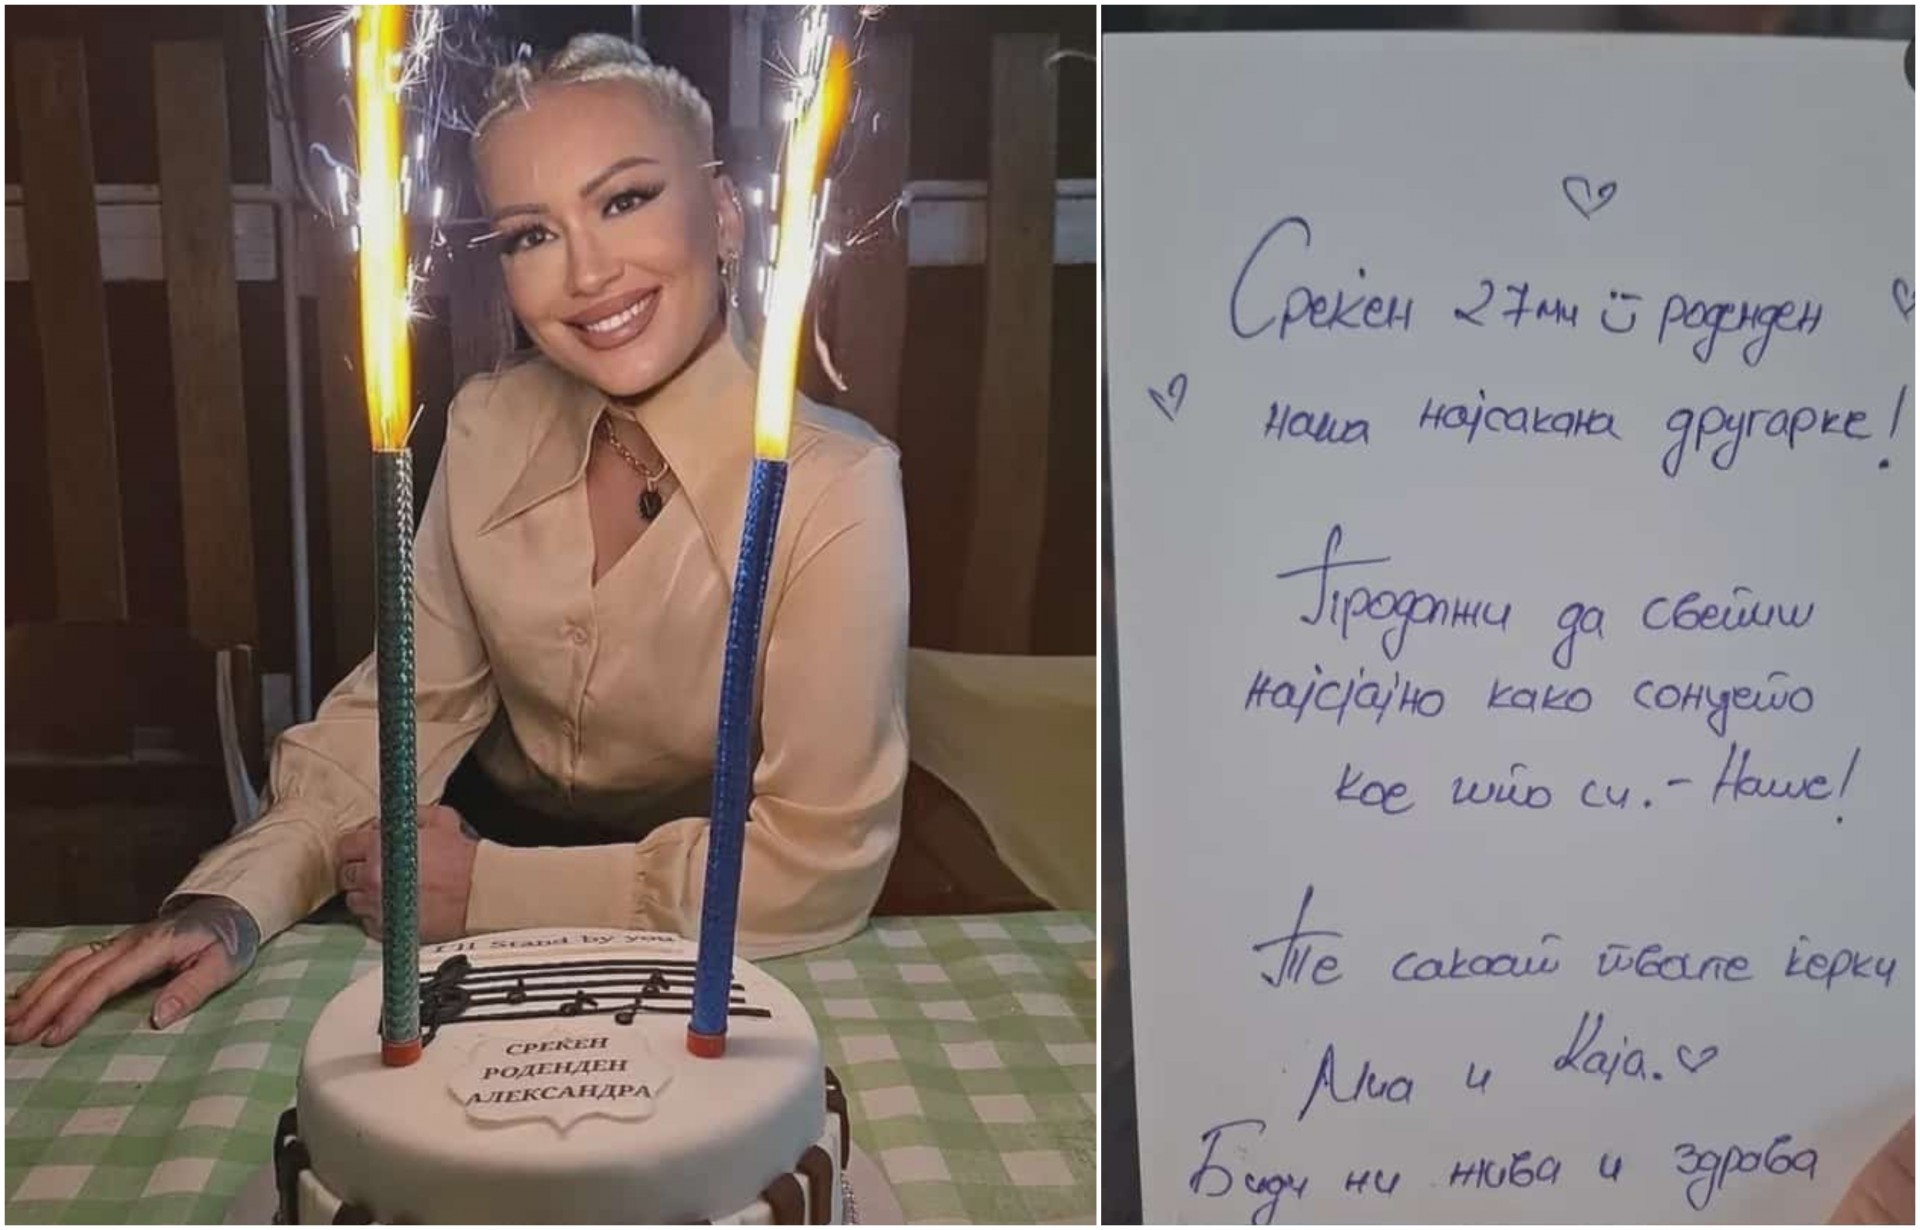 I'll Stand by you
СРЕЌЕН
РОДЕНДЕН
АЛЕКСАНДРА
Среќен 27ми роденден
наша најсакана другарке!
Продолжи да светиш
најсјајно како сонцето
кое што си. - Наше!
Те сакаат твоте ќерки
Миа и Каја.
Биди ни жива и здрава